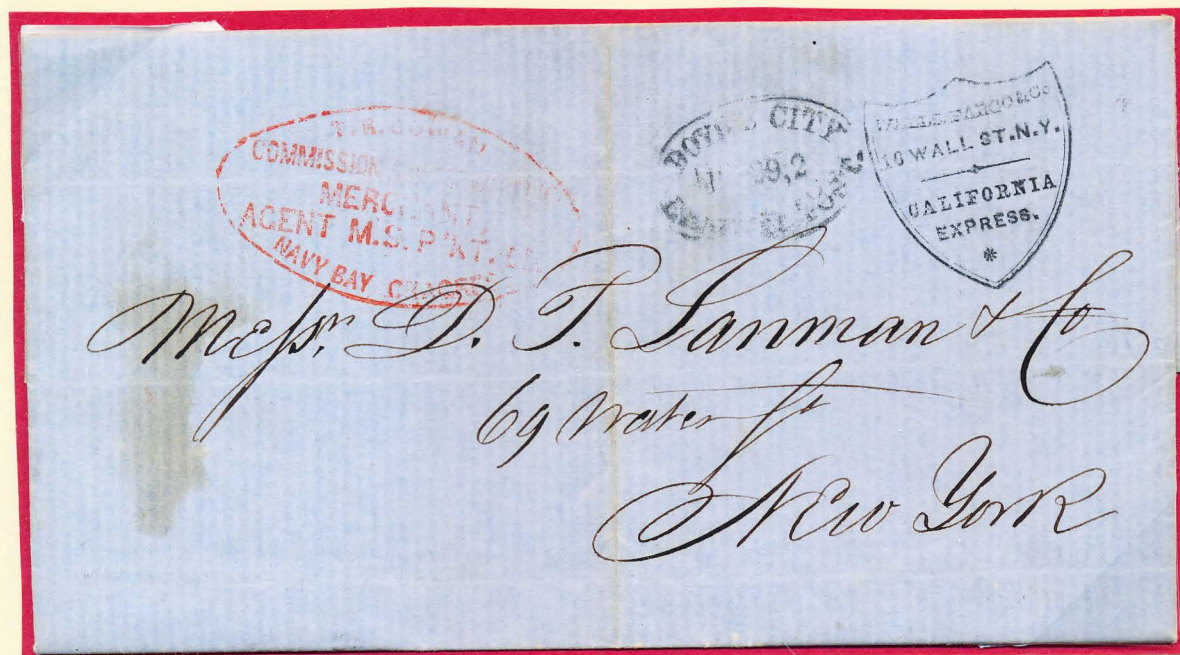 COMMISSION
MERCHANT,
AGENT M.S. P'KT.
NAVY BAY CHAGRES
BOYD'S CITY
29,2
EXPRESS POST
WELLS, FARGO & Co
16 WALL ST. N.Y.
CALIFORNIA
EXPRESS.
*
Messrs. D. T. Lanman & Co
69 Water St
New York